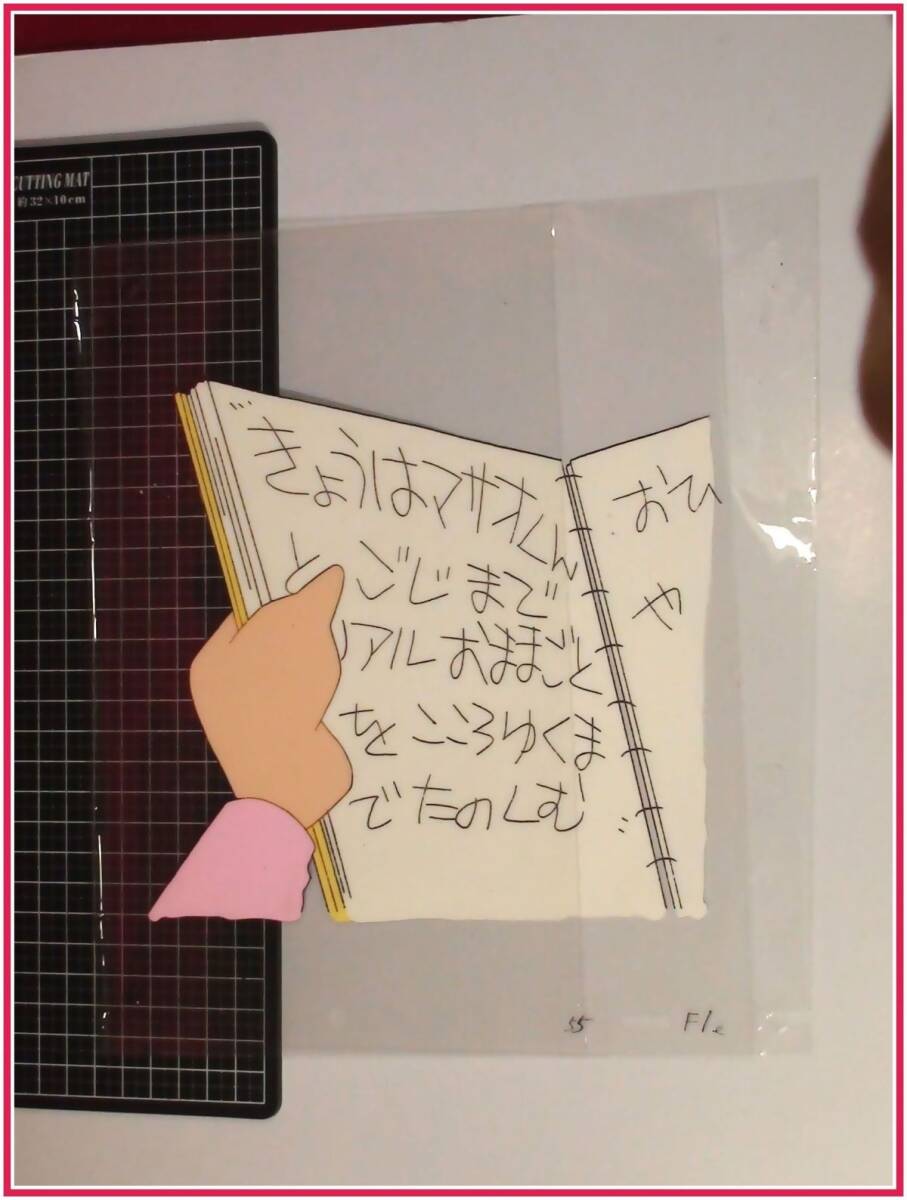 CUTTING MAT
約32×10cm
きょうはマサオくん
と ごじまで
リアルおままごと
をこころゆくま
でたのしむ
おひ
や
55 F1e